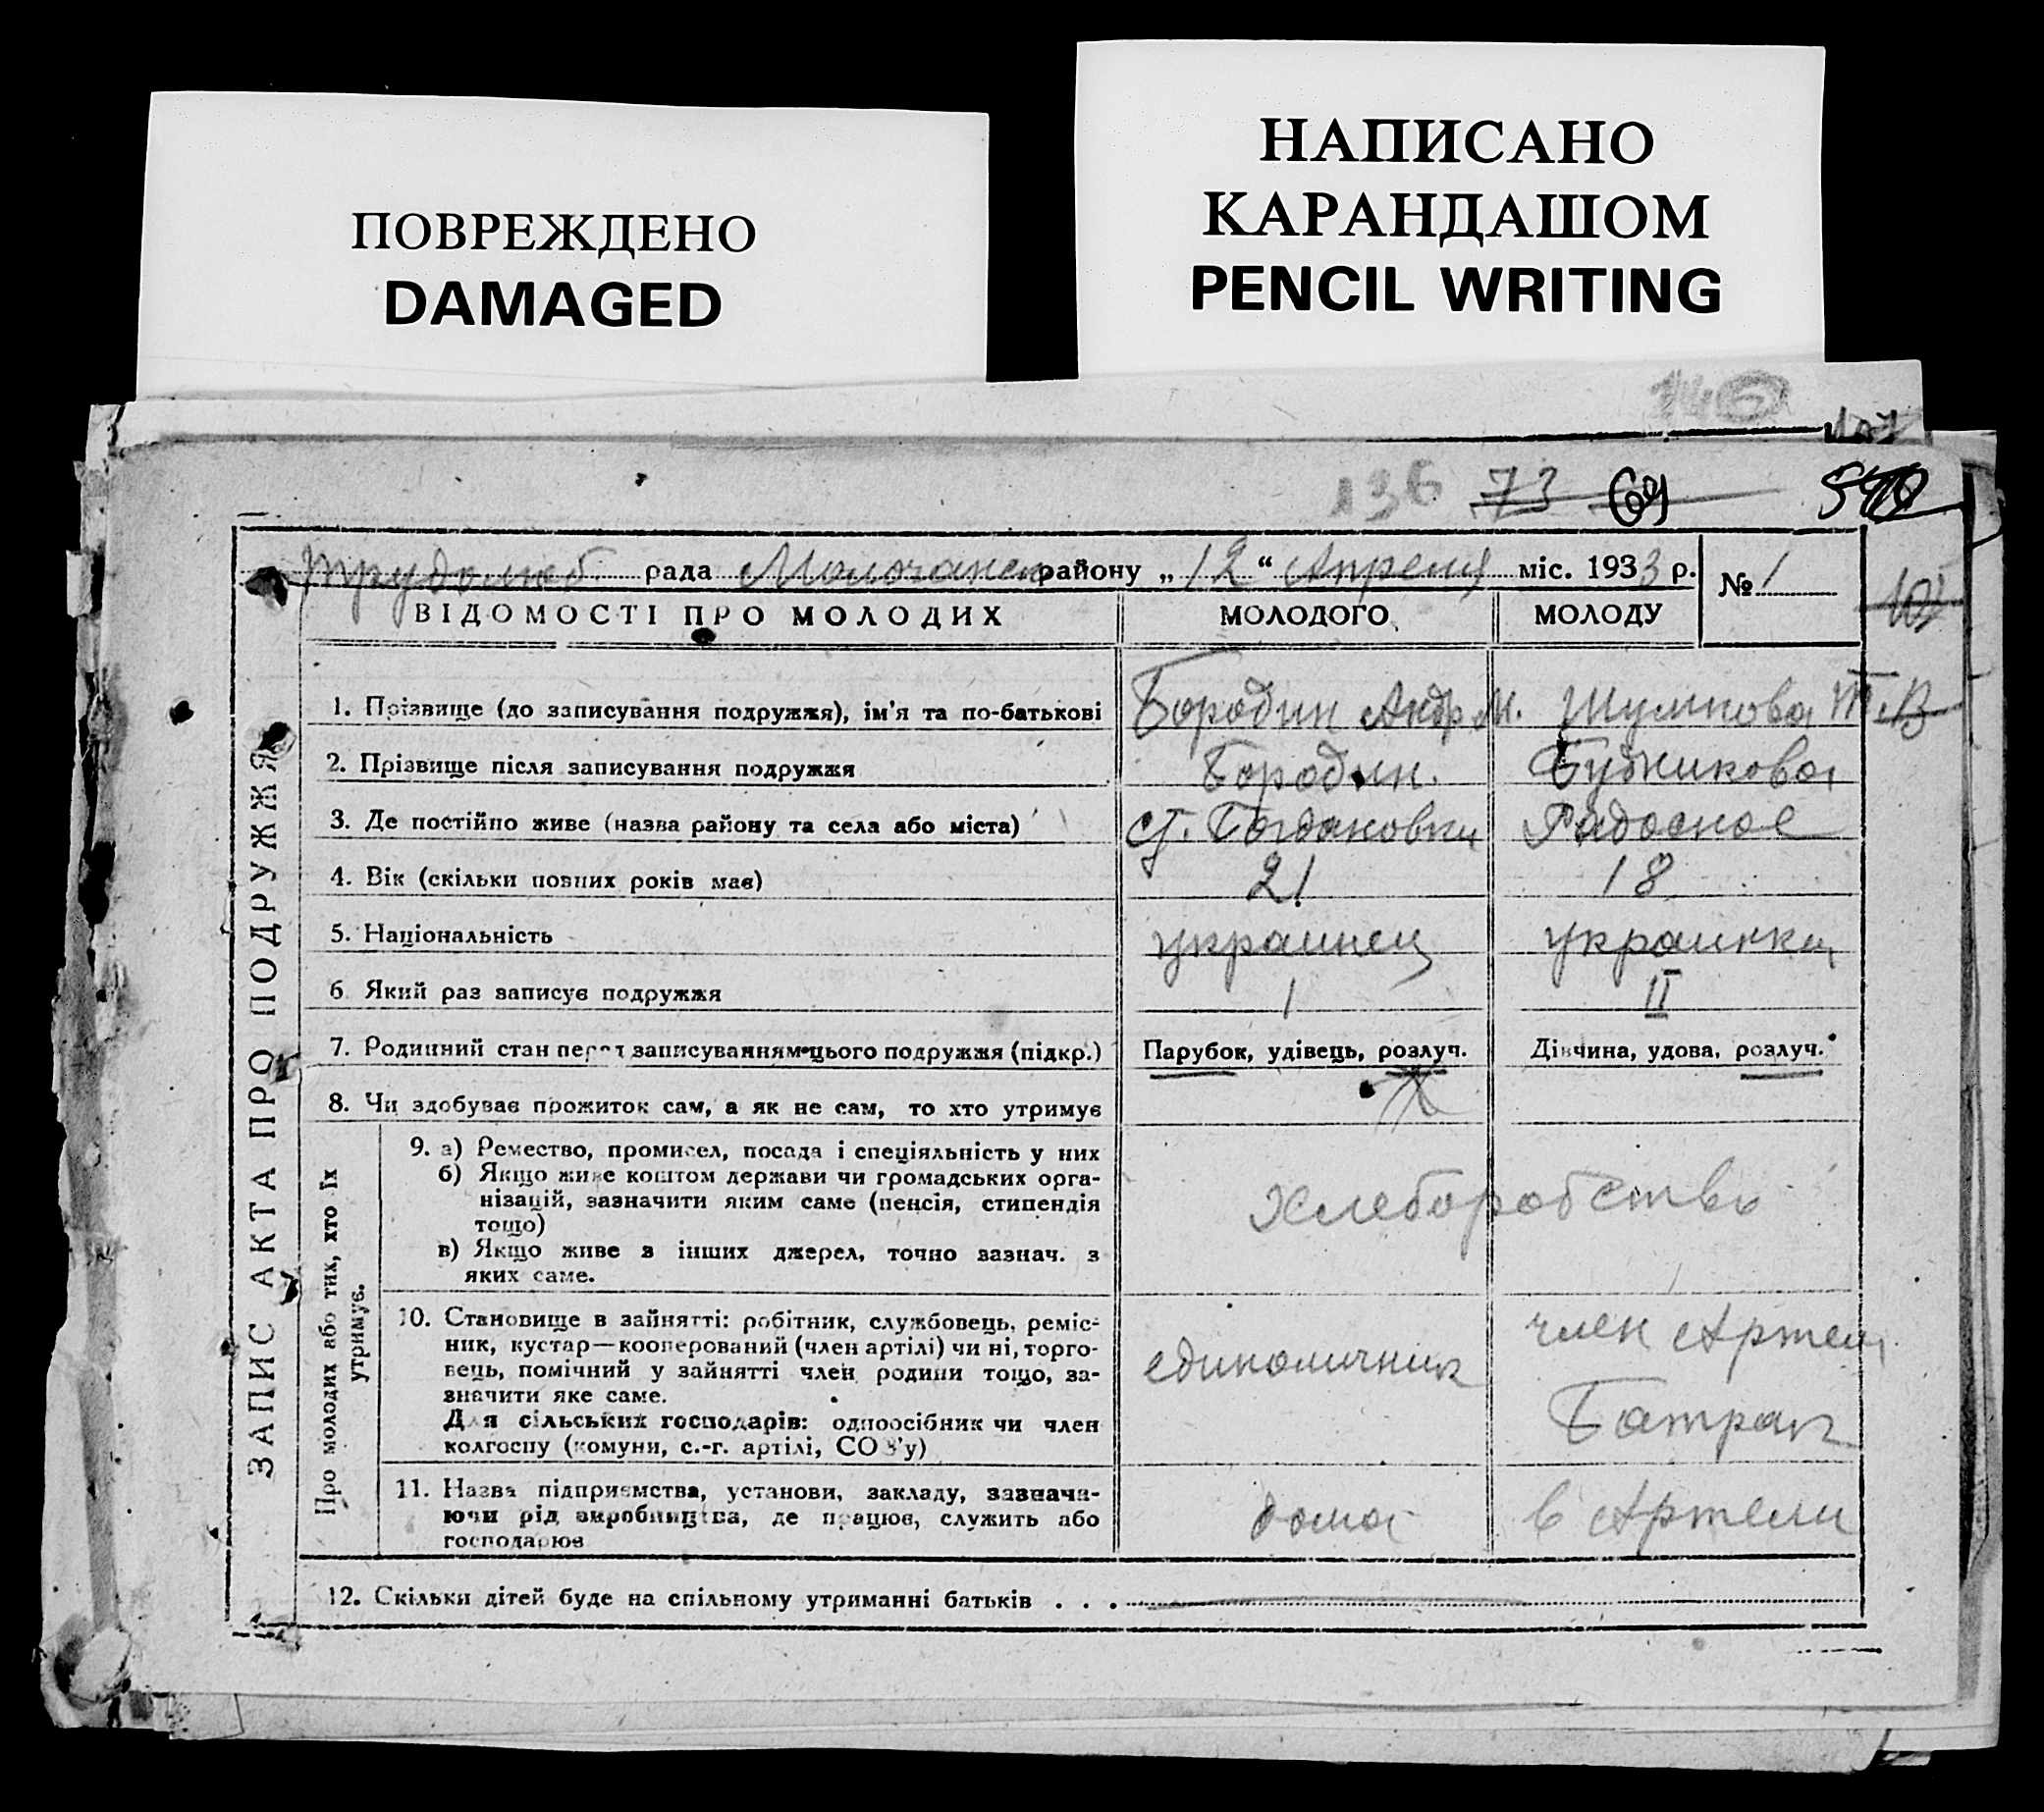 ПОВРЕЖДЕНО
DAMAGED
НАПИСАНО
КАРАНДАШОМ
PENCIL WRITING
136 73 69
ЗАПИС АКТА ПРО ПОДРУЖЖЯ
Трудолюб. рада Молочанск району „ 12 “ Апреля міс. 1933 р. № 1
ВІДОМОСТІ ПРО МОЛОДИХ МОЛОДОГО МОЛОДУ
1. Прізвище (до записування подружжя), ім'я та по-батькові Бородин Андр М. Шумкова Т. В
2. Прізвище після записування подружжя Бородин.
3. Де постійно живе (назва району та села або міста) ст. Богдановка Радосное
4. Вік (скільки повних років має) 21 18
5. Національність украинец украинка
6 Який раз записує подружжя I II
7. Родинний стан перед записуванням цього подружжя (підкр.) Парубок, удівець, розлуч. Дівчина, удова, розлуч.
8. Чи здобуває прожиток сам, а як не сам, то хто утримує
Про молодих або тих, хто їх
утримує.
9. а) Ремество, промисел, посада і спеціяльність у них
б) Якщо живе коштом держави чи громадських орга-
нізацій, зазначити яким саме (пенсія, стипендія
тощо)
в) Якщо живе з інших джерел, точно зазнач. з
яких саме.
Хлеборобство
10. Становище в зайнятті: робітник, службовець, реміс-
ник, кустар—кооперований (член артілі) чи ні, торго-
вець, помічний у зайнятті член родини тощо, за-
значити яке саме.
Для сільських господарів: одноосібник чи член
колгоспу (комуни, с.-г. артілі, СОЗ'у)
единоличник
член Артели
Батрак
11. Назва підприємства, установи, закладу, зазнача-
ючи рід виробництва, де працює, служить або
господарює
дома
в Артели
12. Скільки дітей буде на спільному утриманні батьків . . .